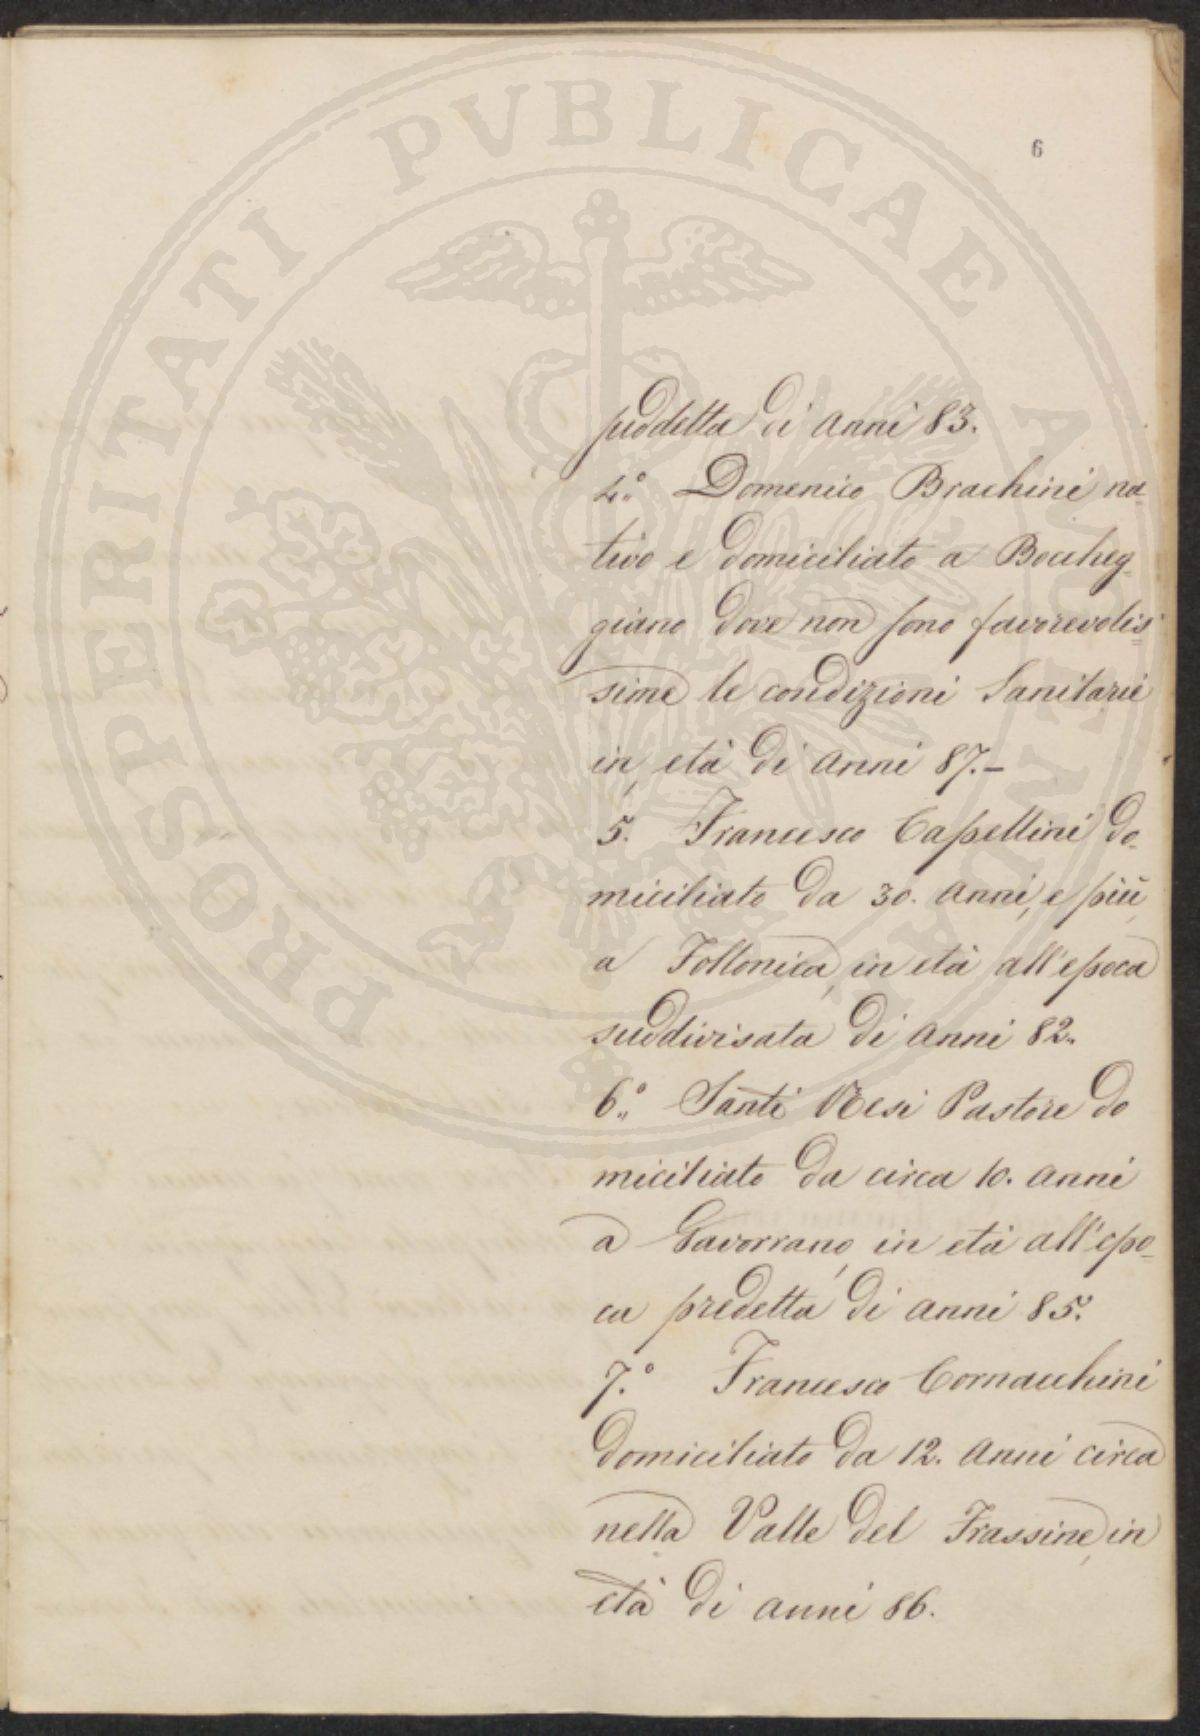 6
suddetta di anni 83.
4.° Domenico Brachini na-
tivo e domiciliato a Boccheg-
giano dove non sono favorevolis-
sime le condizioni Sanitarie
in età di anni 87.-
5. Francesco Capellini do-
miciliato da 30. anni, e più,
a Follonica, in età all'epoca
suddivisata di anni 82.
6.° Santi Nesi Pastore do
miciliato da circa 10. anni
a Gavorrano, in età all'epo-
ca predetta di anni 85.
7.° Francesco Cornacchini
domiciliato da 12. anni circa
nella Valle del Frassine, in
età di anni 86.
PROSPERITATI PVBLICAE AVGENDAE